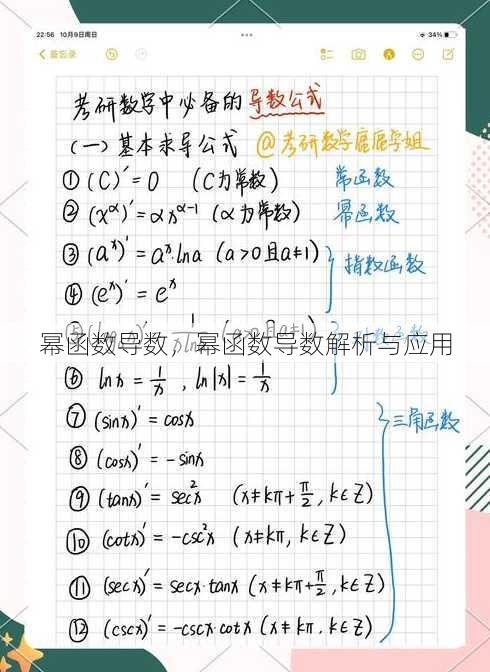 22:56 10月9日周日 ••• 34%
备忘录
考研数学中必备的导数公式
(一)基本求导公式 @考研数学鹿鹿学姐
①(C)′=0 (C为常数) 常函数
②(x^α)′=αx^(α-1) (α为常数) 幂函数
③(a^x)′=a^x·lna (a>0且a≠1)
指数函数
④(e^x)′=e^x
幂函数导数,幂函数导数解析与应用
⑥ lnx=1/x , ln|x|=1/x
⑦(sinx)′=cosx 三角函数
⑧(cosx)′=-sinx
⑨(tanx)′=sec²x (x≠kπ+π/2,k∈Z)
⑩(cotx)′=-csc²x (x≠kπ,k∈Z)
⑪(secx)′=secx·tanx (x≠kπ+π/2,k∈Z)
⑫(cscx)′=-cscx·cotx (x≠kπ.k∈Z)